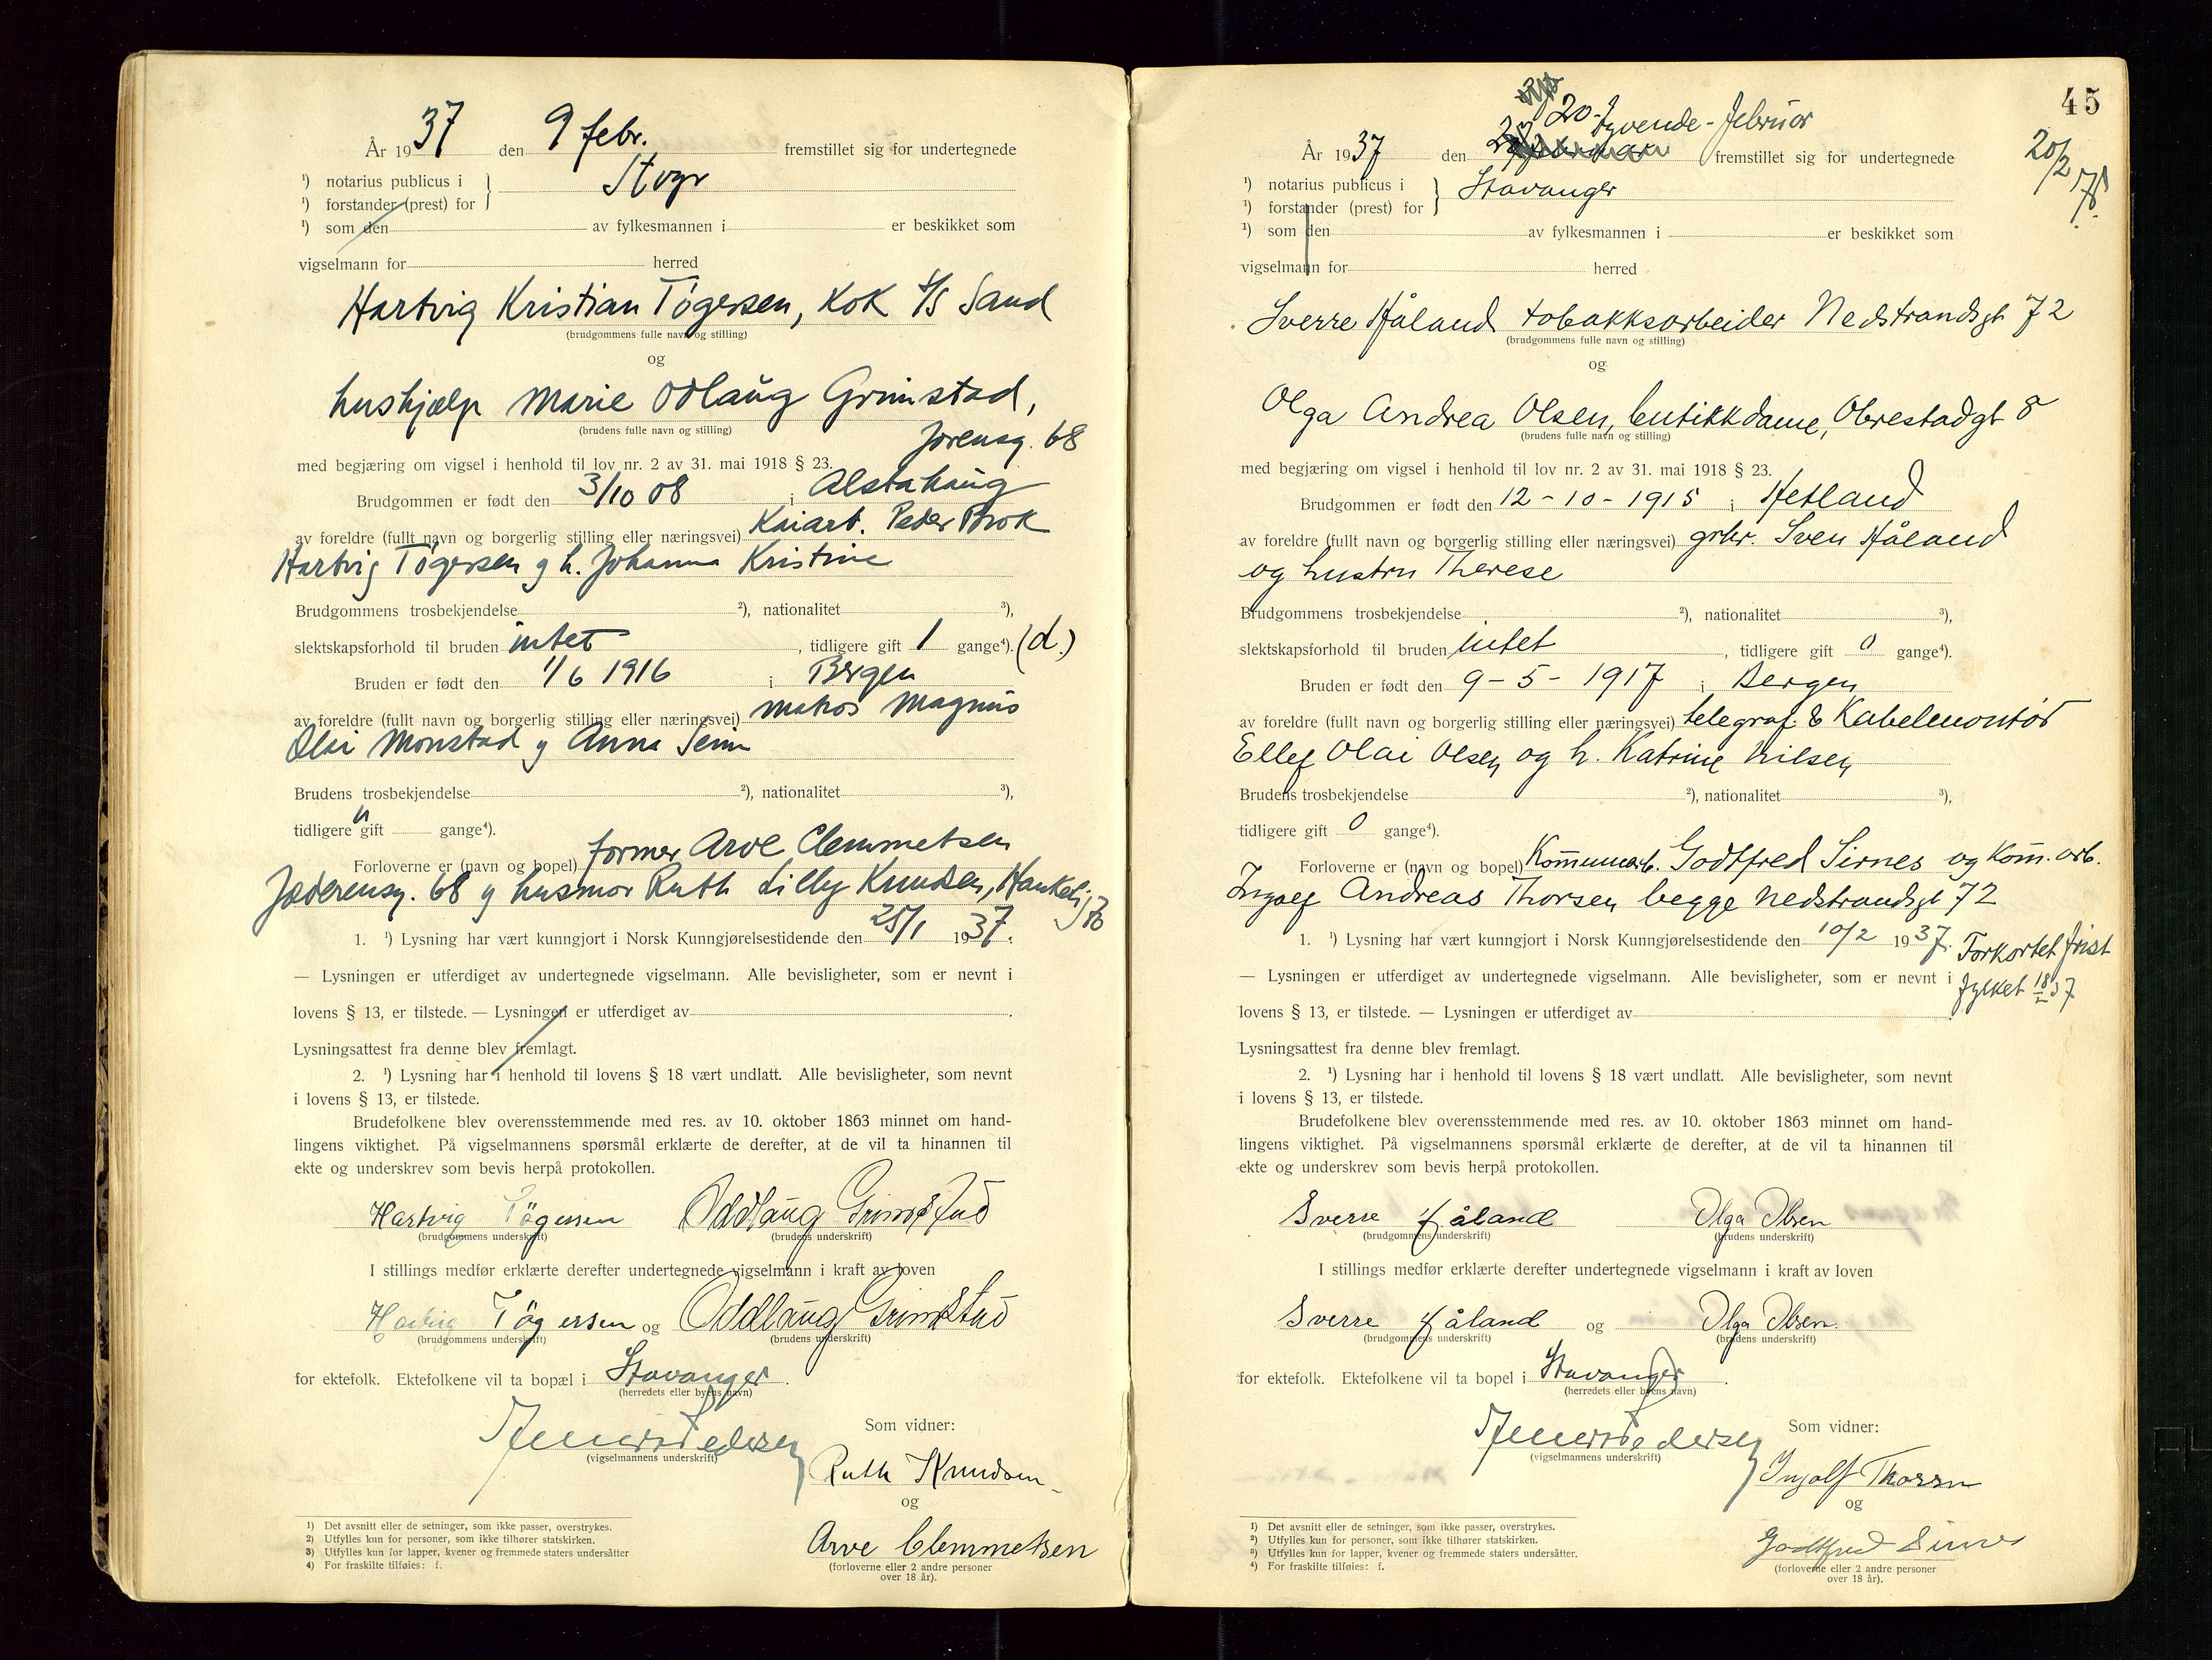 År 1937 den 9 febr. fremstillet sig for undertegnede
¹) notarius publicus i Stvgr
¹) forstander (prest) for
¹) som den av fylkesmannen i er beskikket som
vigselmann for herred
Hartvig Kristian Tøgersen, kok s/s Sand
(brudgommens fulle navn og stilling)
og
hushjælp Marie Odlaug Grimstad,
(brudens fulle navn og stilling)
Jærensg. 68
med begjæring om vigsel i henhold til lov nr. 2 av 31. mai 1918 § 23.
Brudgommen er født den 3/10 08 i Alstahaug
av foreldre (fullt navn og borgerlig stilling eller næringsvei) Kaiarb. Peder Brok
Hartvig Tøgersen g h. Johanna Kristine
Brudgommens trosbekjendelse ²), nationalitet ³),
slektskapsforhold til bruden intet , tidligere gift 1 gange⁴). (d.)
Bruden er født den 1/6 1916 i Bergen
av foreldre (fullt navn og borgerlig stilling eller næringsvei) matros Magnus
Olai Monstad g Anna
Brudens trosbekjendelse ²), nationalitet ³),
tidligere gift gange⁴).
Forloverne er (navn og bopel) former Arve Clemmetsen
Jæderensg. 68 g husmor Ruth Lilly Knudsen, Haukeligt
1. ¹) Lysning har vært kunngjort i Norsk Kunngjørelsestidende den 25/1 1937.
— Lysningen er utferdiget av undertegnede vigselmann. Alle bevisligheter, som er nevnt i
lovens § 13, er tilstede. — Lysningen er utferdiget av .
Lysningsattest fra denne blev fremlagt.
2. ¹) Lysning har i henhold til lovens § 18 vært undlatt. Alle bevisligheter, som nevnt
i lovens § 13, er tilstede.
Brudefolkene blev overensstemmende med res. av 10. oktober 1863 minnet om hand-
lingens viktighet. På vigselmannens spørsmål erklærte de derefter, at de vil ta hinannen til
ekte og underskrev som bevis herpå protokollen.
Hartvig Tögersen Oddlaug Grimstad
(brudgommens underskrift) (brudens underskrift)
I stillings medfør erklærte derefter undertegnede vigselmann i kraft av loven
Hartvig Tögersen og Oddlaug Grimstad
(brudgommens underskrift) (brudens underskrift)
for ektefolk. Ektefolkene vil ta bopæl i Stavanger .
(herredets eller byens navn)
Som vidner:
(vigselmannens underskrift)
Ruth Knudsen
og
Arve Clemmetsen
(forloverne eller 2 andre personer
over 18 år).
1) Det avsnitt eller de setninger, som ikke passer, overstrykes.
2) Utfylles kun for personer, som ikke tilhører statskirken.
3) Utfylles kun for lapper, kvener og fremmede staters undersåtter
4) For fraskilte tilføies: f.
45
20. tyvende - februar
År 1937 den fremstillet sig for undertegnede
20/2
¹) notarius publicus i Stavanger
¹) forstander (prest) for
¹) som den av fylkesmannen i er beskikket som
vigselmann for herred
Sverre Håland tobakksarbeider Nedstrandsgt 72
(brudgommens fulle navn og stilling)
og
Olga Andrea Olsen, butikkdame, Obrestadgt 8
(brudens fulle navn og stilling)
med begjæring om vigsel i henhold til lov nr. 2 av 31. mai 1918 § 23.
Brudgommen er født den 12-10-1915 i Hetland
av foreldre (fullt navn og borgerlig stilling eller næringsvei) grbr. Sven Håland
og hustru Therese
Brudgommens trosbekjendelse ²), nationalitet ³),
slektskapsforhold til bruden intet , tidligere gift 0 gange⁴).
Bruden er født den 9-5-1917 i Bergen
av foreldre (fullt navn og borgerlig stilling eller næringsvei) telegraf & Kabelmontør
Ellef Olai Olsen og h. Katrine Nilsen
Brudens trosbekjendelse ²), nationalitet ³),
tidligere gift 0 gange⁴).
Forloverne er (navn og bopel) Kommunearb. Godtfred Sirnes og Kom. arb.
Ingolf Andreas Thorsen begge Nedstrandsgt 72
1. ¹) Lysning har vært kunngjort i Norsk Kunngjørelsestidende den 10/2 1937. Forkortet frist
— Lysningen er utferdiget av undertegnede vigselmann. Alle bevisligheter, som er nevnt i fylket 18/2 37
lovens § 13, er tilstede. — Lysningen er utferdiget av .
Lysningsattest fra denne blev fremlagt.
2. ¹) Lysning har i henhold til lovens § 18 vært undlatt. Alle bevisligheter, som nevnt
i lovens § 13, er tilstede.
Brudefolkene blev overensstemmende med res. av 10. oktober 1863 minnet om hand-
lingens viktighet. På vigselmannens spørsmål erklærte de derefter, at de vil ta hinannen til
ekte og underskrev som bevis herpå protokollen.
Sverre Håland Olga Olsen
(brudgommens underskrift) (brudens underskrift)
I stillings medfør erklærte derefter undertegnede vigselmann i kraft av loven
Sverre Håland og Olga Olsen.
(brudgommens underskrift) (brudens underskrift)
for ektefolk. Ektefolkene vil ta bopel i Stavanger .
(herredets eller byens navn)
Som vidner:
(vigselmannens underskrift)
Ingolf Thorsen
og
Godtfred Sirnes
(forloverne eller 2 andre personer
over 18 år).
1) Det avsnitt eller de setninger, som ikke passer, overstrykes.
2) Utfylles kun for personer, som ikke tilhører statskirken.
3) Utfylles kun for lapper, kvener og fremmede staters undersåtter.
4) For fraskilte tilføies: f.